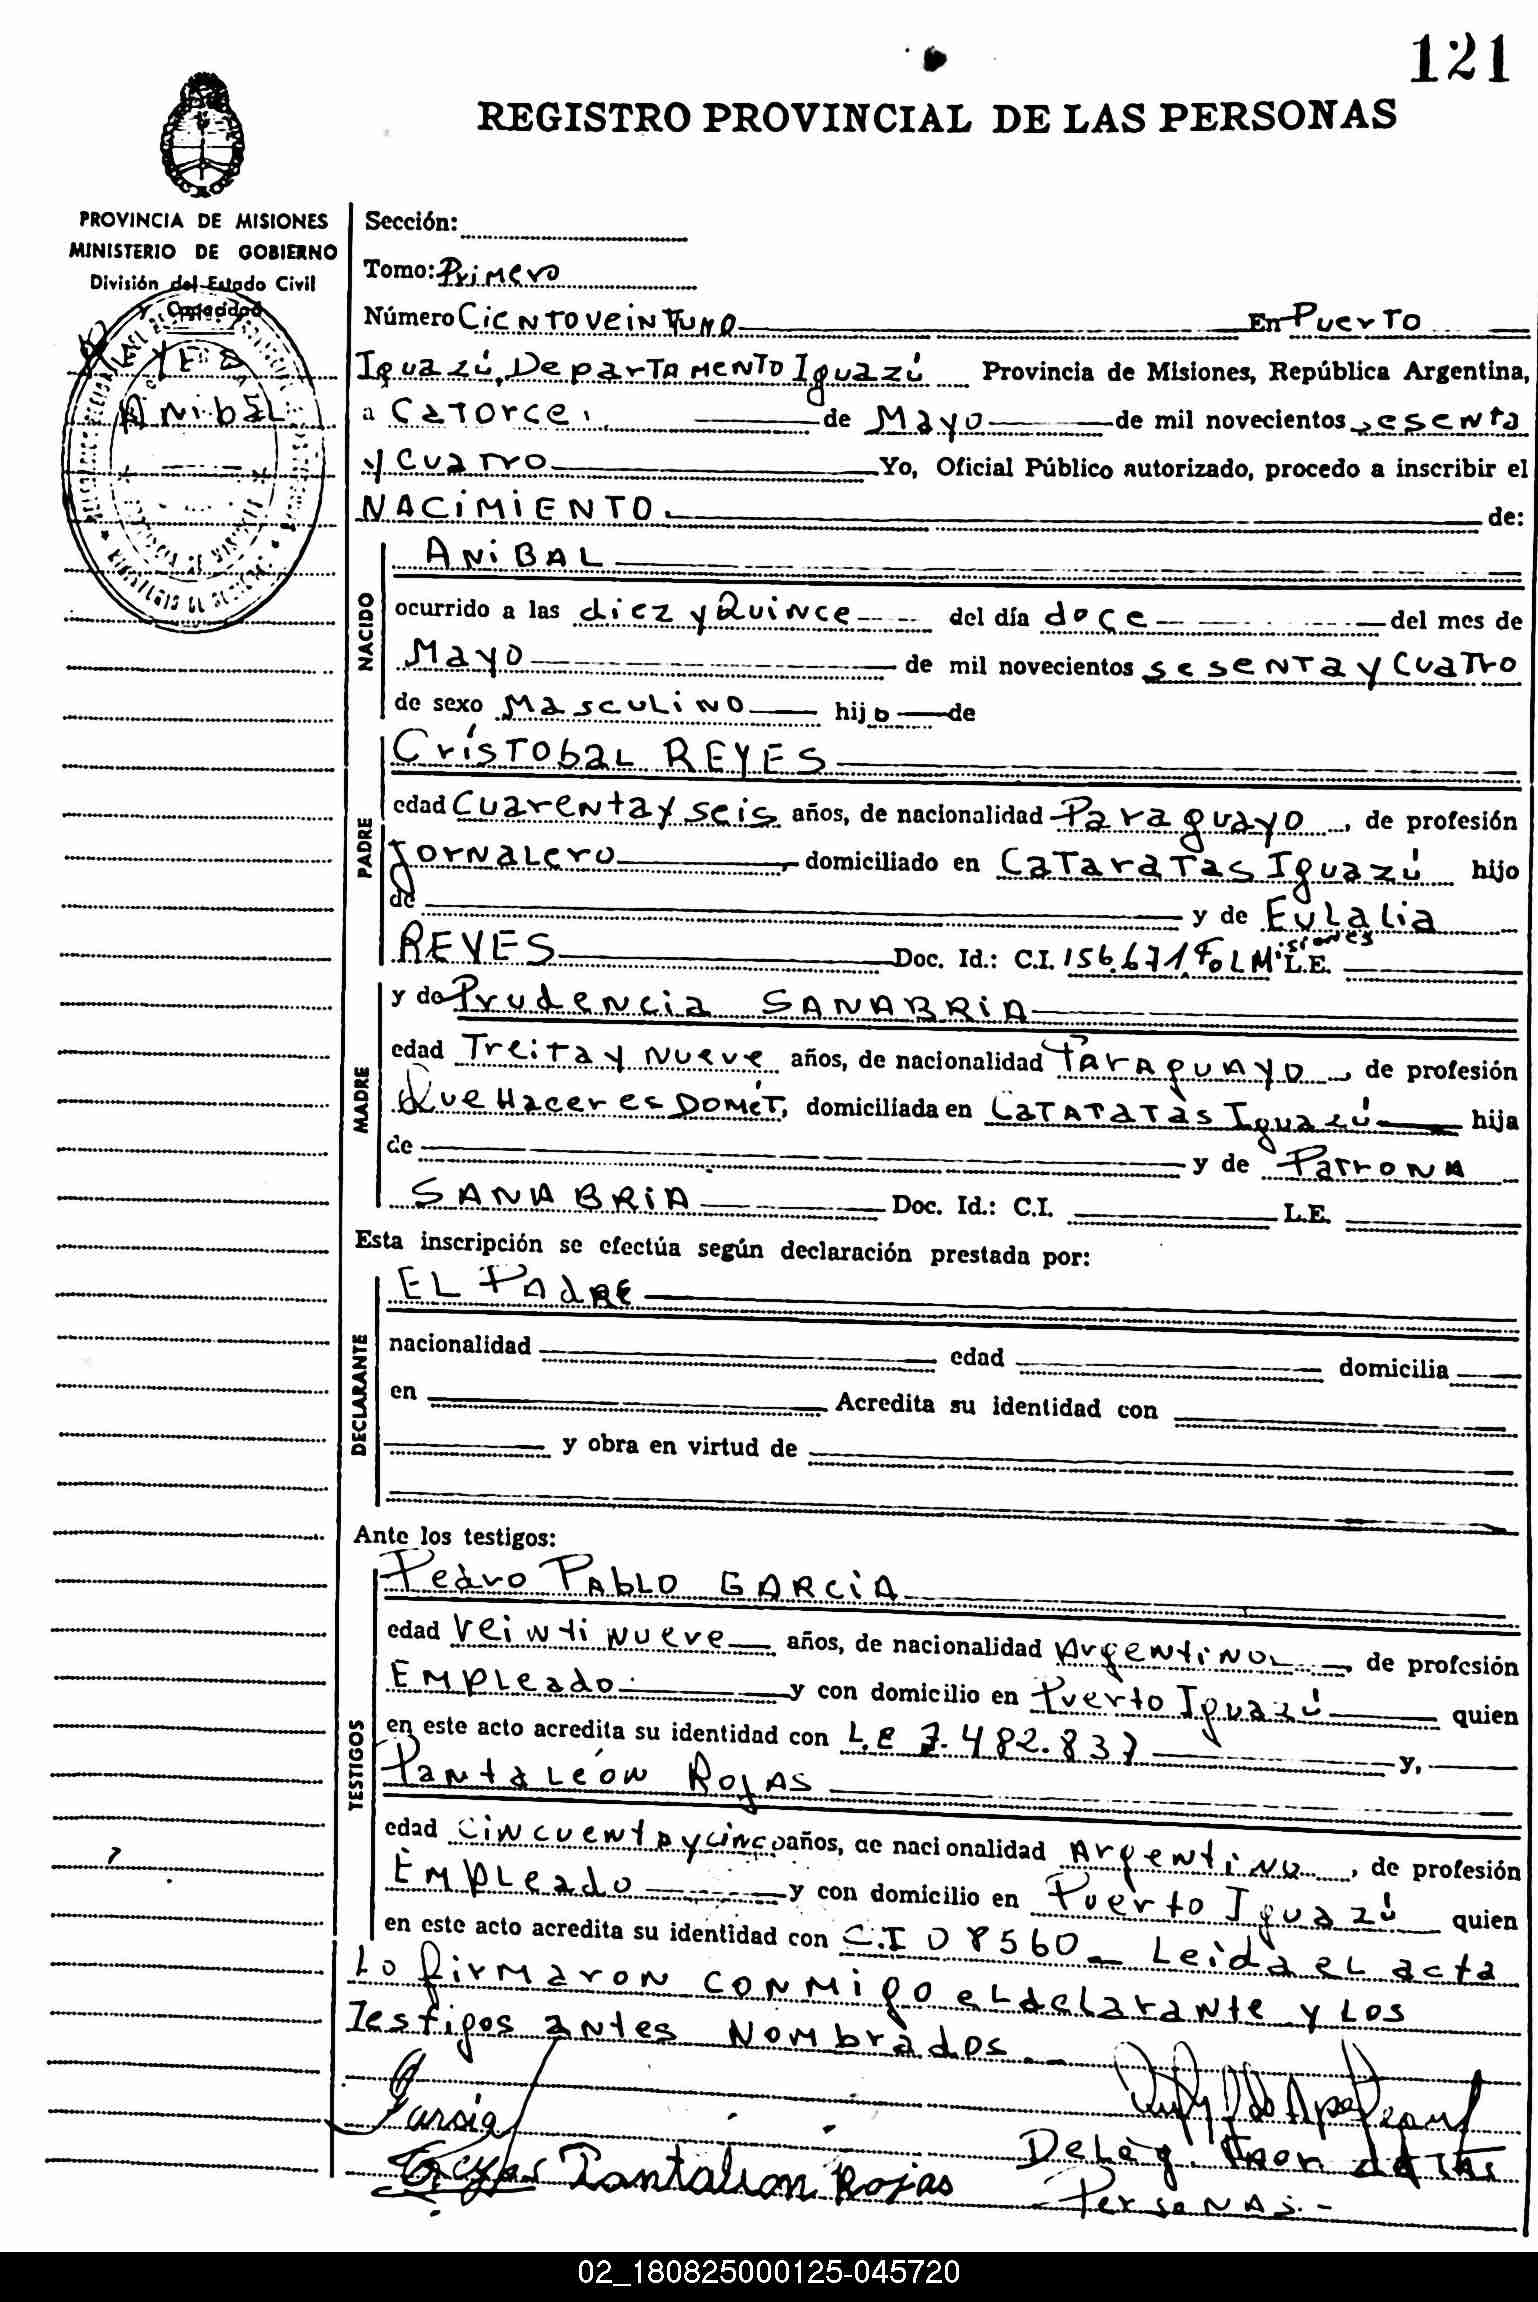 121
REGISTRO PROVINCIAL DE LAS PERSONAS
PROVINCIA DE MISIONES
MINISTERIO DE GOBIERNO
División del Estado Civil
y Capacidad
REYES
Anibal
Sección:
Tomo: Primero
Número Cientoveintiuno En Puerto
Iguazú, Departamento Iguazú Provincia de Misiones, República Argentina,
a Catorce, de Mayo de mil novecientos sesenta
y Cuatro Yo, Oficial Público autorizado, procedo a inscribir el
NACiMiENTO. de:
NACIDO
ANiBAL
ocurrido a las diez y Quince del día doce del mes de
Mayo de mil novecientos sesenta y Cuatro
de sexo Masculino hijo de
PADRE
Crístobal REYES
edad Cuarenta y seis años, de nacionalidad Paraguayo, de profesión
Jornalero, domiciliado en Cataratas Iguazú hijo
de y de Eulalia
REYES Doc. Id.: C.I. 156.671 Pol Misiones L.E.
MADRE
y de Prudencia SANABRiA
edad Treita y Nueve años, de nacionalidad Paraguayo, de profesión
QueHaceres Domét, domiciliada en Cataratas Iguazú hija
de y de Patrona
SANABRiA Doc. Id.: C.I. L.E.
Esta inscripción se efectúa según declaración prestada por:
DECLARANTE
EL Padre
nacionalidad edad domicilia
en Acredita su identidad con
y obra en virtud de
Ante los testigos:
TESTIGOS
Pedro Pablo GARCiA
edad Veintinueve años, de nacionalidad Argentino, de profesión
Empleado y con domicilio en Puerto Iguazú quien
en este acto acredita su identidad con L.E 7.482.837 y,
Pantaleón Rojas
edad Cincuenta y cinco años, de nacionalidad Argentino, de profesión
Empleado y con domicilio en Puerto Iguazú quien
en este acto acredita su identidad con C.I 08560 Leida el acta
Lo firmaron conmigo el delarante y los
Testigos antes Nombrados.
Garsia
Reyes Pantalion Rojas
Deleg. de las
Personas.-
02_180825000125-045720